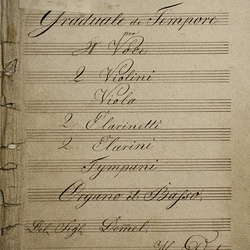 Graduale de Tempore
per
4 Voce
2 Violini
Viola
2 Clarinetti
2 Clarini
Tympani
Organo et Basso
Del Sigl. Demel